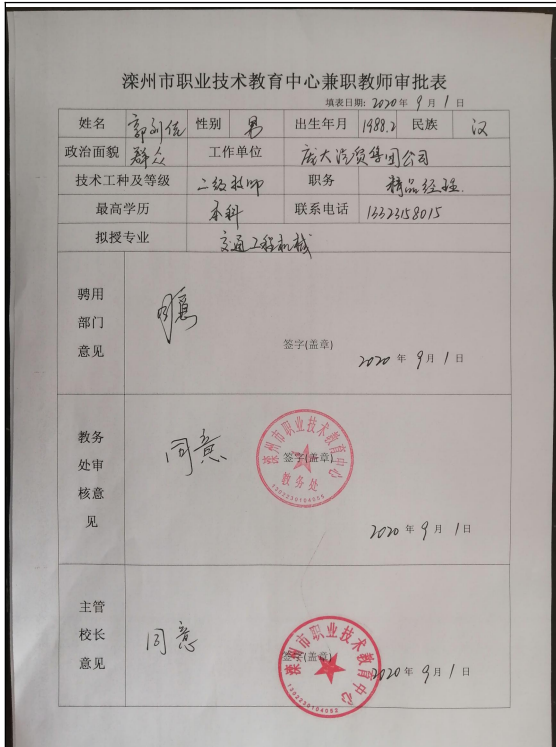 滦州市职业技术教育中心兼职教师审批表
填表日期: 2020年 9月 1日
姓名 性别 男 出生年月 1988.2 民族 汉
政治面貌 群众 工作单位 庞大汽贸集团公司
技术工种及等级 二级技师 职务 精品经理
最高学历 本科 联系电话 13323158015
拟授专业 交通工程机械
聘用部门意见 同意
签字(盖章)
2020 年 9月 1日
教务处审核意见 同意
签字(盖章)
滦州市职业技术教育中心
教务处
2020 年 9月 1日
主管校长意见 同意
签字(盖章)
滦州市职业技术教育中心
2020 年 9月 1日